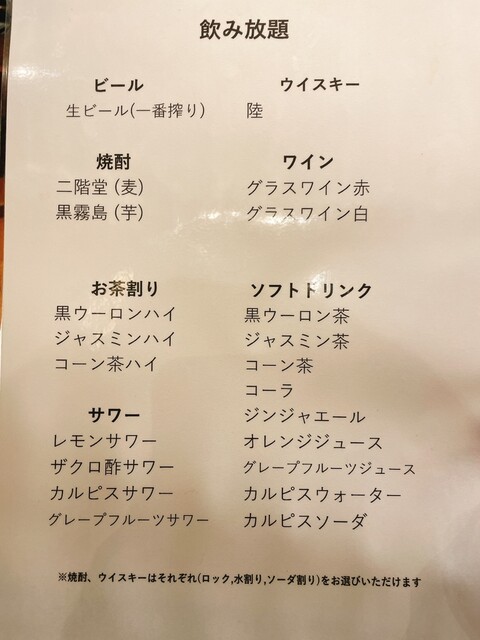 飲み放題
ビール
生ビール(一番搾り)
ウイスキー
陸
焼酎
二階堂 (麦)
黒霧島 (芋)
ワイン
グラスワイン赤
グラスワイン白
お茶割り
黒ウーロンハイ
ジャスミンハイ
コーン茶ハイ
サワー
レモンサワー
ザクロ酢サワー
カルピスサワー
グレープフルーツサワー
ソフトドリンク
黒ウーロン茶
ジャスミン茶
コーン茶
コーラ
ジンジャエール
オレンジジュース
グレープフルーツジュース
カルピスウォーター
カルピスソーダ
※焼酎、ウイスキーはそれぞれ(ロック,水割り,ソーダ割り)をお選びいただけます